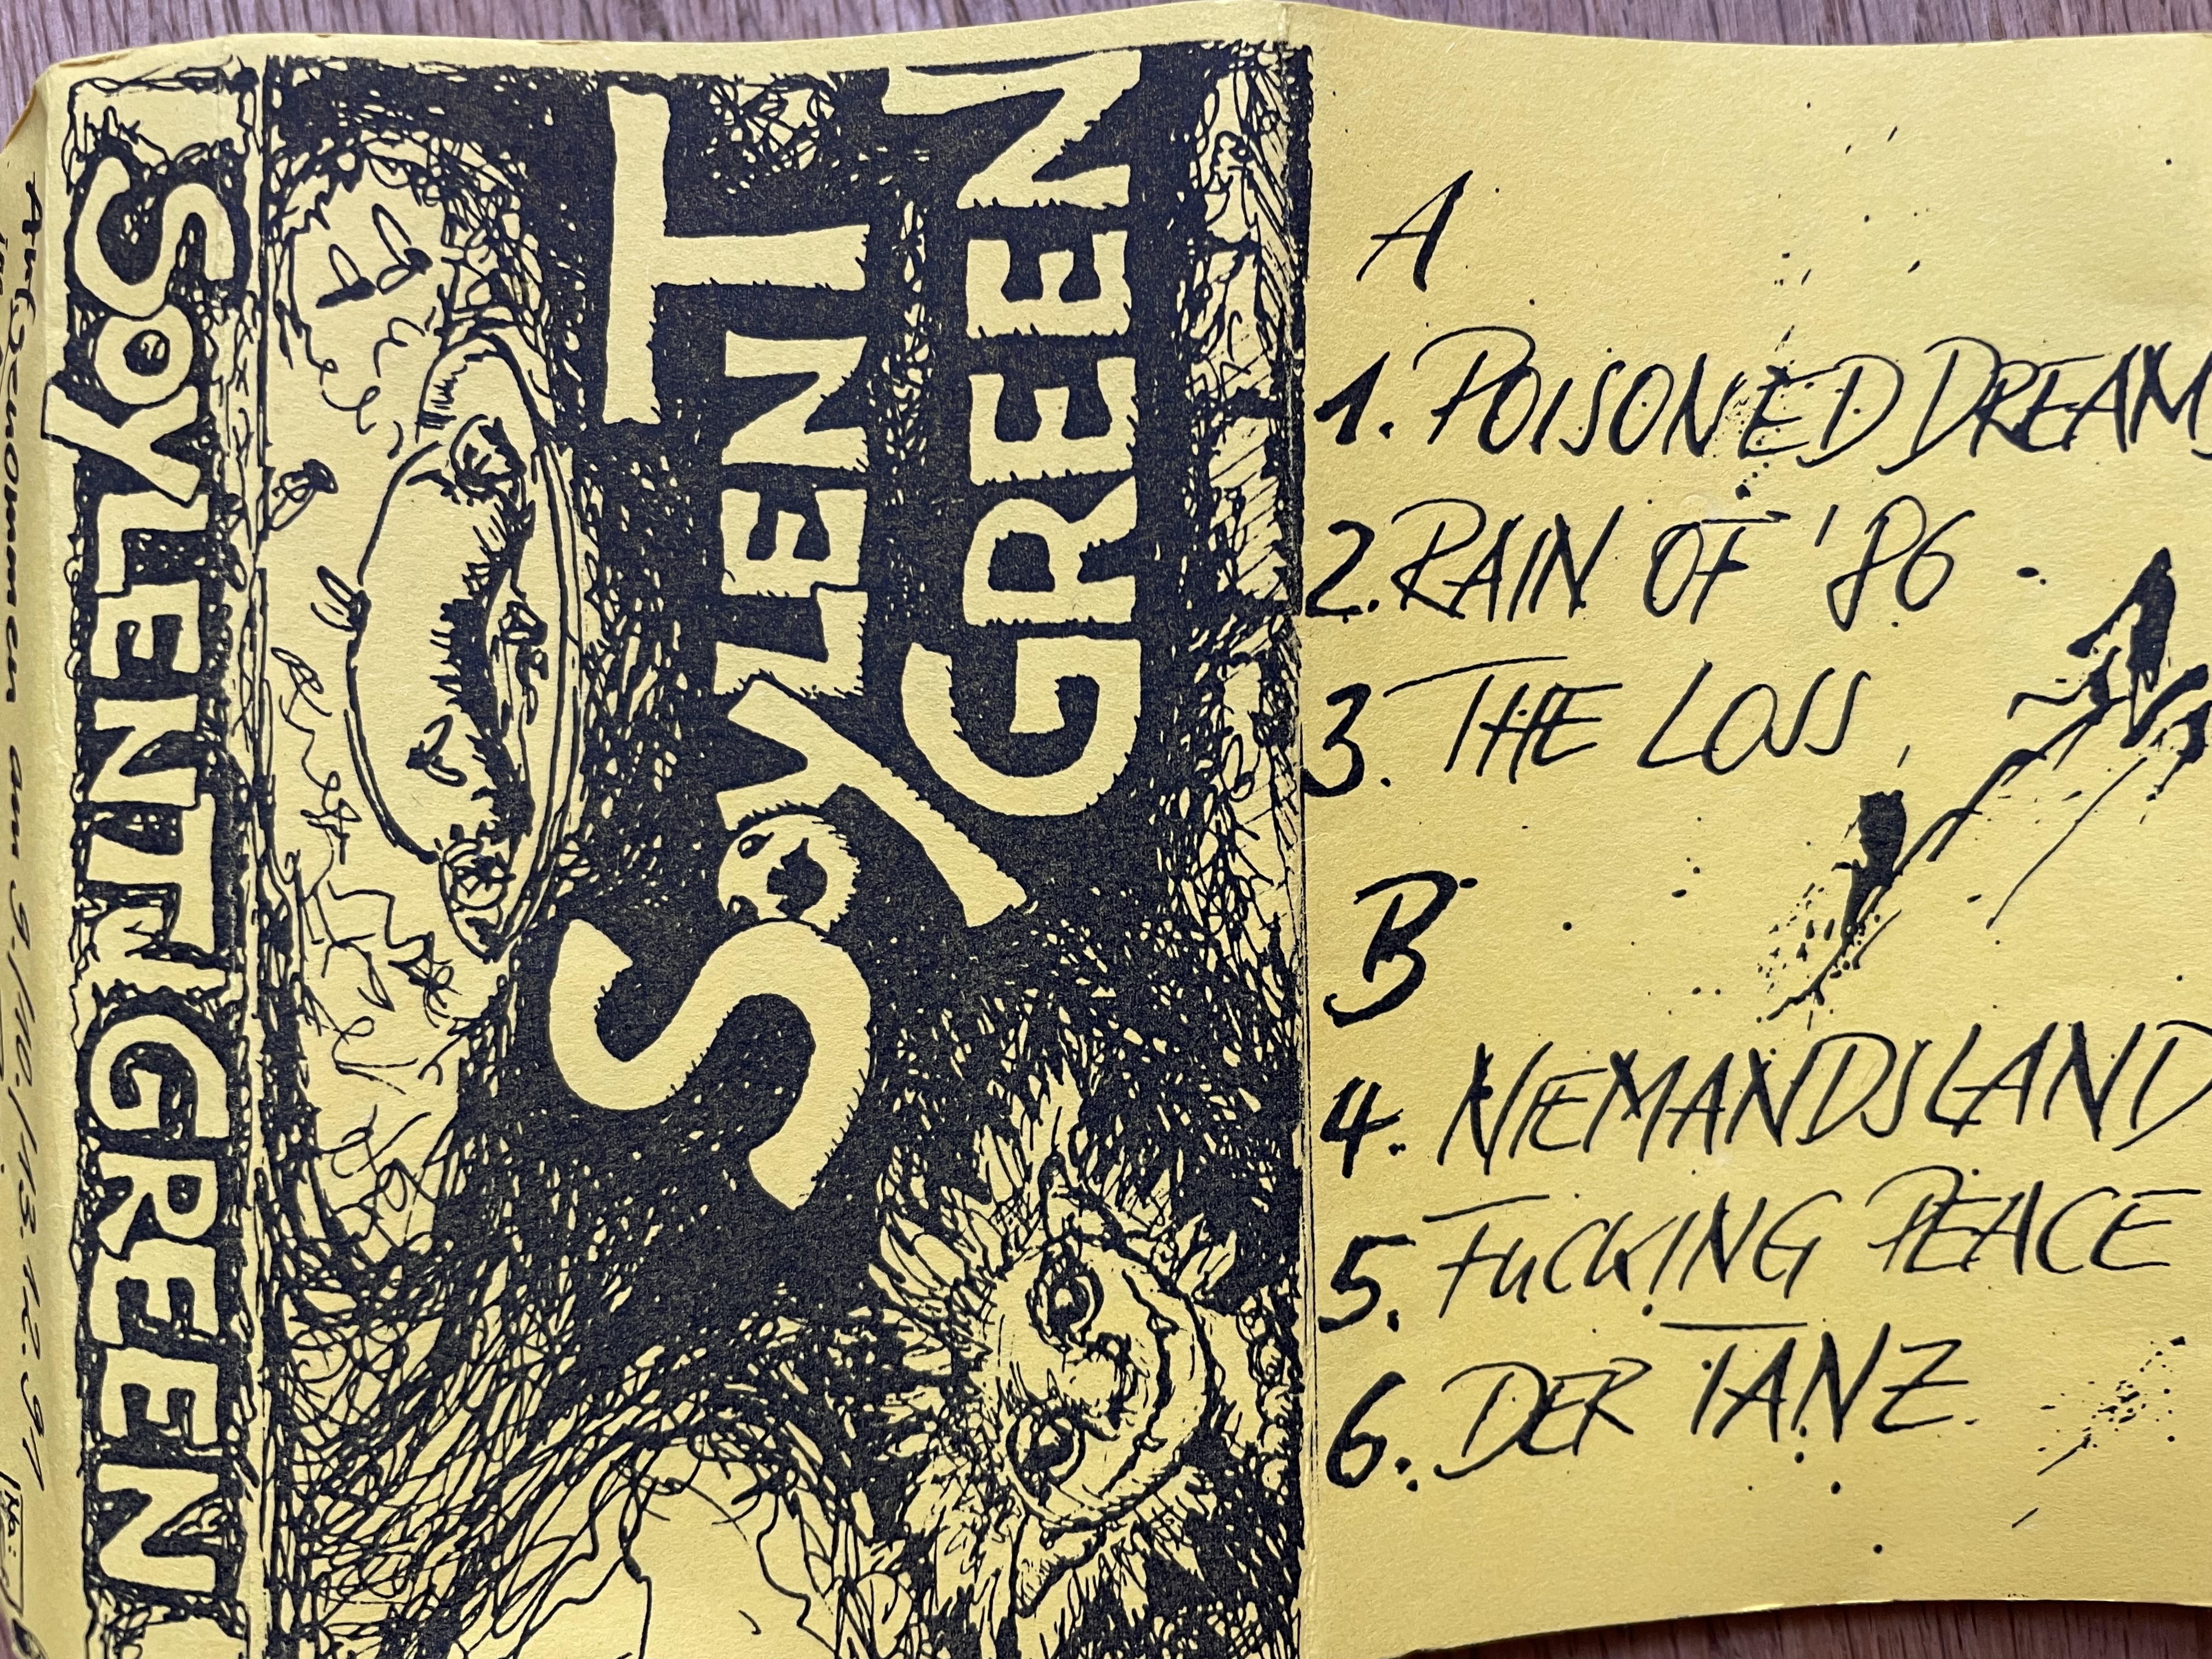 Aufgenommen am 9./10./13.12.91
Info:
SOYLENT GREEN
SOYLENT
GREEN
A
1. POISONED DREAMS
2. RAIN OF '86
3. THE LOSS
B
4. NIEMANDSLAND
5. FUCKING PEACE
6. DER TANZ